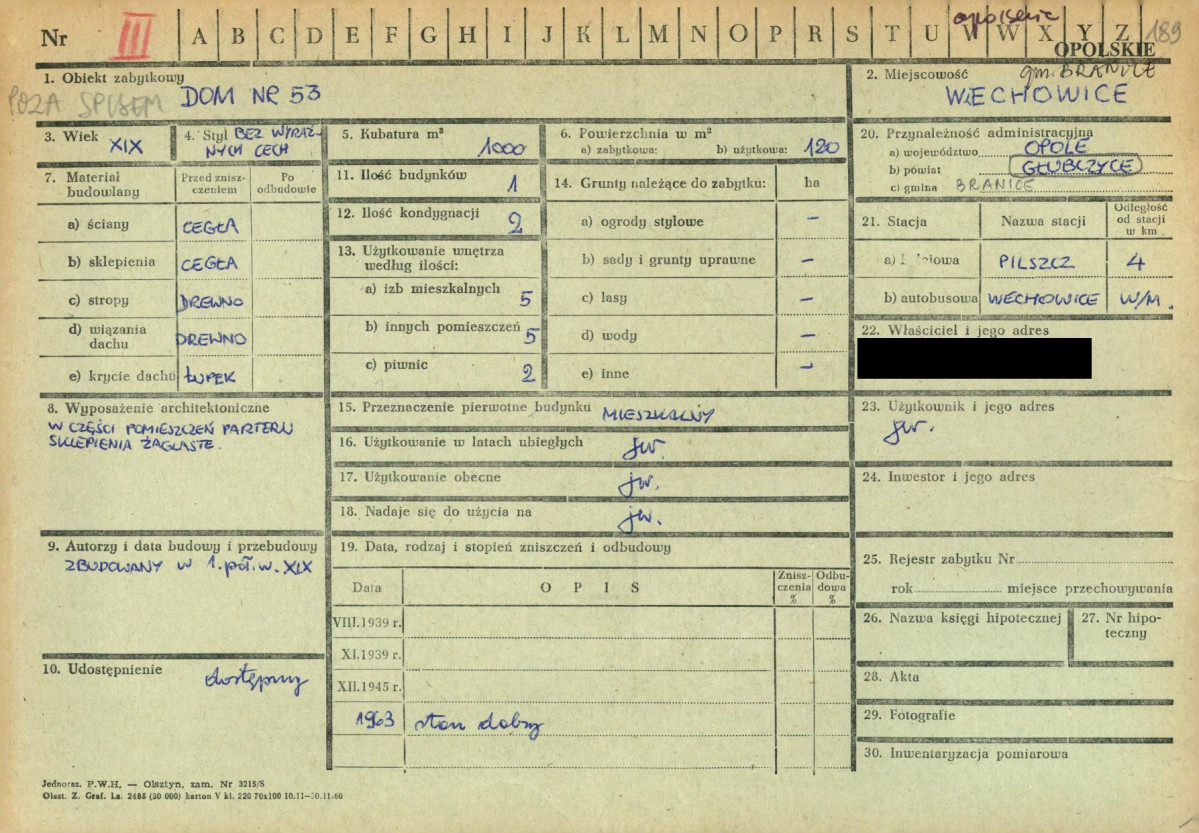 Nr III A B C D E F G H I J K L M N O P R S T U V W X Y Z 189
opolskie
OPOLSKIE
1. Obiekt zabytkowy
POZA SPISEM DOM NR 53
2. Miejscowość gm. BRANICE
WIECHOWICE
3. Wiek XIX
4. Styl BEZ WYRAŹ-
NYCH CECH
5. Kubatura m³
1000
6. Powierzchnia w m²
a) zabytkowa: b) użytkowa: 120
20. Przynależność administracyjna
a) województwo OPOLE
b) powiat GŁUBCZYCE
c) gmina BRANICE
7. Materiał
budowlany
Przed znisz-
czeniem
Po
odbudowie
a) ściany CEGŁA
b) sklepienia CEGŁA
c) stropy DREWNO
d) wiązania
dachu DREWNO
e) krycie dachu ŁUPEK
11. Ilość budynków 1
12. Ilość kondygnacji 2
13. Użytkowanie wnętrza
według ilości:
a) izb mieszkalnych 5
b) innych pomieszczeń 5
c) piwnic 2
14. Grunty należące do zabytku: ha
a) ogrody stylowe –
b) sady i grunty uprawne –
c) lasy –
d) wody –
e) inne –
21. Stacja Nazwa stacji
Odległość
od stacji
w km
a) PILSZCZ 4
b) autobusowa WIECHOWICE W/M.
22. Właściciel i jego adres
8. Wyposażenie architektoniczne
W CZĘŚCI POMIESZCZEŃ PARTERU
SKLEPIENIA ŻAGLASTE.
15. Przeznaczenie pierwotne budynku MIESZKALNY
16. Użytkowanie w latach ubiegłych jw.
17. Użytkowanie obecne jw.
18. Nadaje się do użycia na jw.
23. Użytkownik i jego adres
jw.
24. Inwestor i jego adres
9. Autorzy i data budowy i przebudowy
ZBUDOWANY W 1. poł. w. XIX
10. Udostępnienie
dostępny
19. Data, rodzaj i stopień zniszczeń i odbudowy
Data OPIS
Znisz-
czenia
%
Odbu-
dowa
%
VIII.1939 r.
XI.1939 r.
XII.1945 r.
1963 stan dobry
25. Rejestr zabytku Nr
rok miejsce przechowywania
26. Nazwa księgi hipotecznej
27. Nr hipo-
teczny
28. Akta
29. Fotografie
30. Inwentaryzacja pomiarowa
Jednoraz. P.W.H. — Olsztyn, zam. Nr 3215/S
Olszt. Z. Graf. Lz. 2485 (30 000) karton V kl. 220 70x100 10.11—30.11.60